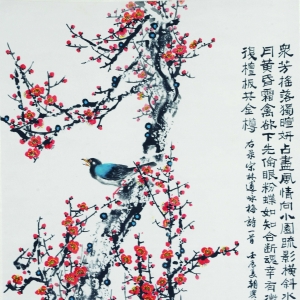 衆芳搖落獨暄妍占盡風情向小園疏影橫斜水
月黃昏霜禽欲下先偷眼粉蝶如知合斷魂幸有微
須檀板共金樽 右录宋林逋咏梅詩一首